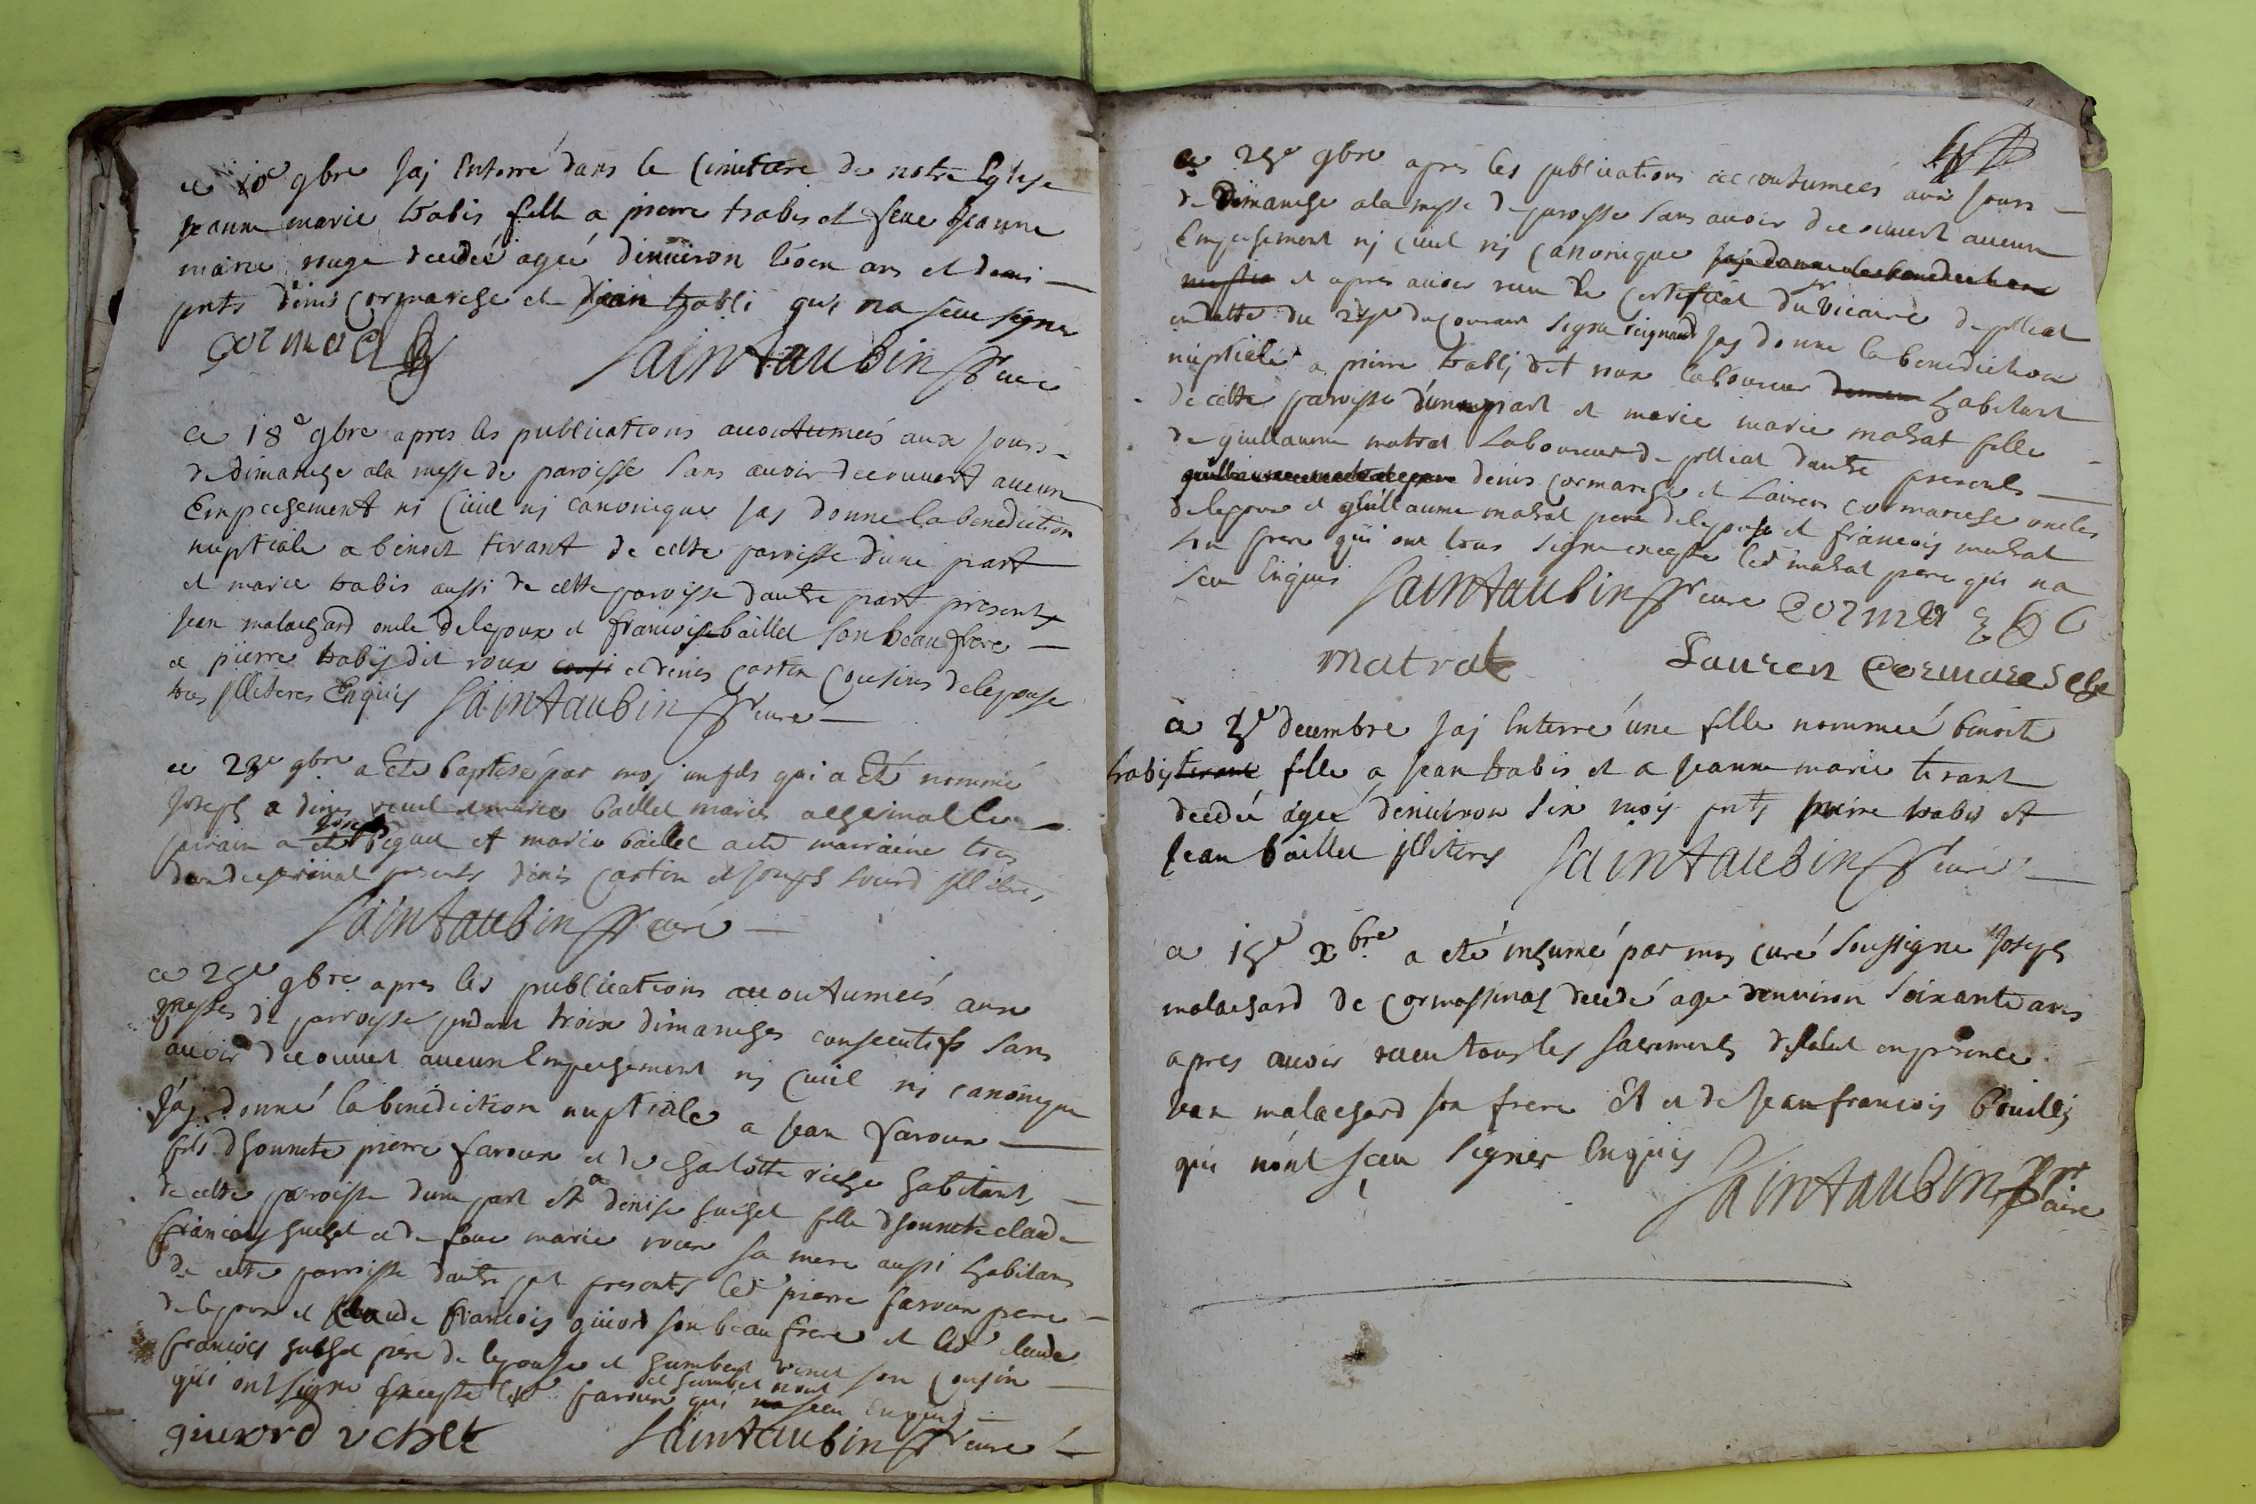 ce 10e 9bre Jaj Enterré dans le Cimetiere de notre Eglise
jeanne marie trabis fille a pierre trabis et feue Jeanne
marie rouge decedée agée d'environ trois ans et demi
pnts denis cormareche et Jean trabli qui na seue signer
cormarch
Saintaubin ptr curé
Ce 18e 9bre apres les publications accoutumeés aux jours
de dimanche ala messe de paroisse sans avoir decouvert aucun
Empechement ni Civil nj canonique Jaj donné la benediction
nuptiale a benoit tirant de cette paroisse dune part
et marie trabis aussi de cette paroisse dautre part presents
Jean malachard oncle delepoux et francois baillet son beau frere
et pierre trabij dit roux et denis cartin Cousins delepouse
tous jlliteres Enquis Saintaubin ptr curé
ce 23e 9bre a eté baptisé par moj un fils qui a eté nommé
Joseph a denis et marie baillet mariés
pairain a eté joseph et marie baillet acté mairaine tous
presents denis cartin et joseph jlliteres
Saintaubin ptr curé
ce 25e 9bre apres les publications accoutumeés aux
messes de paroisse pendant trois dimanches consecutifs sans
avoir decouvert aucun Empechement nj Civil nj canonique
Jaj donné la benediction nuptiale a jean faroux
fils dhonnete pierre faroux et de charlotte riche habitant
de cette paroisse dune part et a denise huchet fille dhonnete claude
francois huchet et de feue marie roux sa mere aussi habitans
de cette paroisse dautre part presents led pierre faroux pere
de lepoux et Claude francois guiord son beau frere et led claude
francois huchet pere de lepouse et humbert vinet son Cousin
et humbert nont
qui ont signe excepté led faroux qui seeu enquis
giuord uchet Saintaubin ptr curé
ce 25e 9bre apres les publications accoutumeés aux jours
de dimanche ala messe de paroisse sans avoir decouvert aucun
Empechement nj civil nj canonique
et apres avoir recu le certificat du sr vicaire de polliat
en datte du du Courant signe reignaud jaj donné la benediction
nuptiale a pierre trablj dit roux laboureur habitant
de cette paroisse dunne part et marie marie matrat fille
de guillaume matrat Laboureur de polliat dautre presents
denis cormareche et Laurens cormareche oncles
delepoux et guillaume matrat pere delepouse et francois matrat
son frere qui ont tous signe excepte led matrat pere qui na
seeu Enquis Saintaubin ptr curé
matrat Lauren cormareche
ce decembre jaj Enterré une fille nommeé benoite
trabij fille a jean trabis et a jeanne marie tirant
decedée ageé denviron six mois pnts pierre trabis et
jean baillet jlliteres Saintaubin ptr curé
ce 15e Xbre a eté inhumé par moj curé soussigne Joseph
malachard de decedé agé denviron soixante ans
apres avoir receu tous les sacrements en presence
Jean malachard son frere Et et de jean francois bouillj
qui nónt sceu signer Enquis
Saintaubin ptr curé